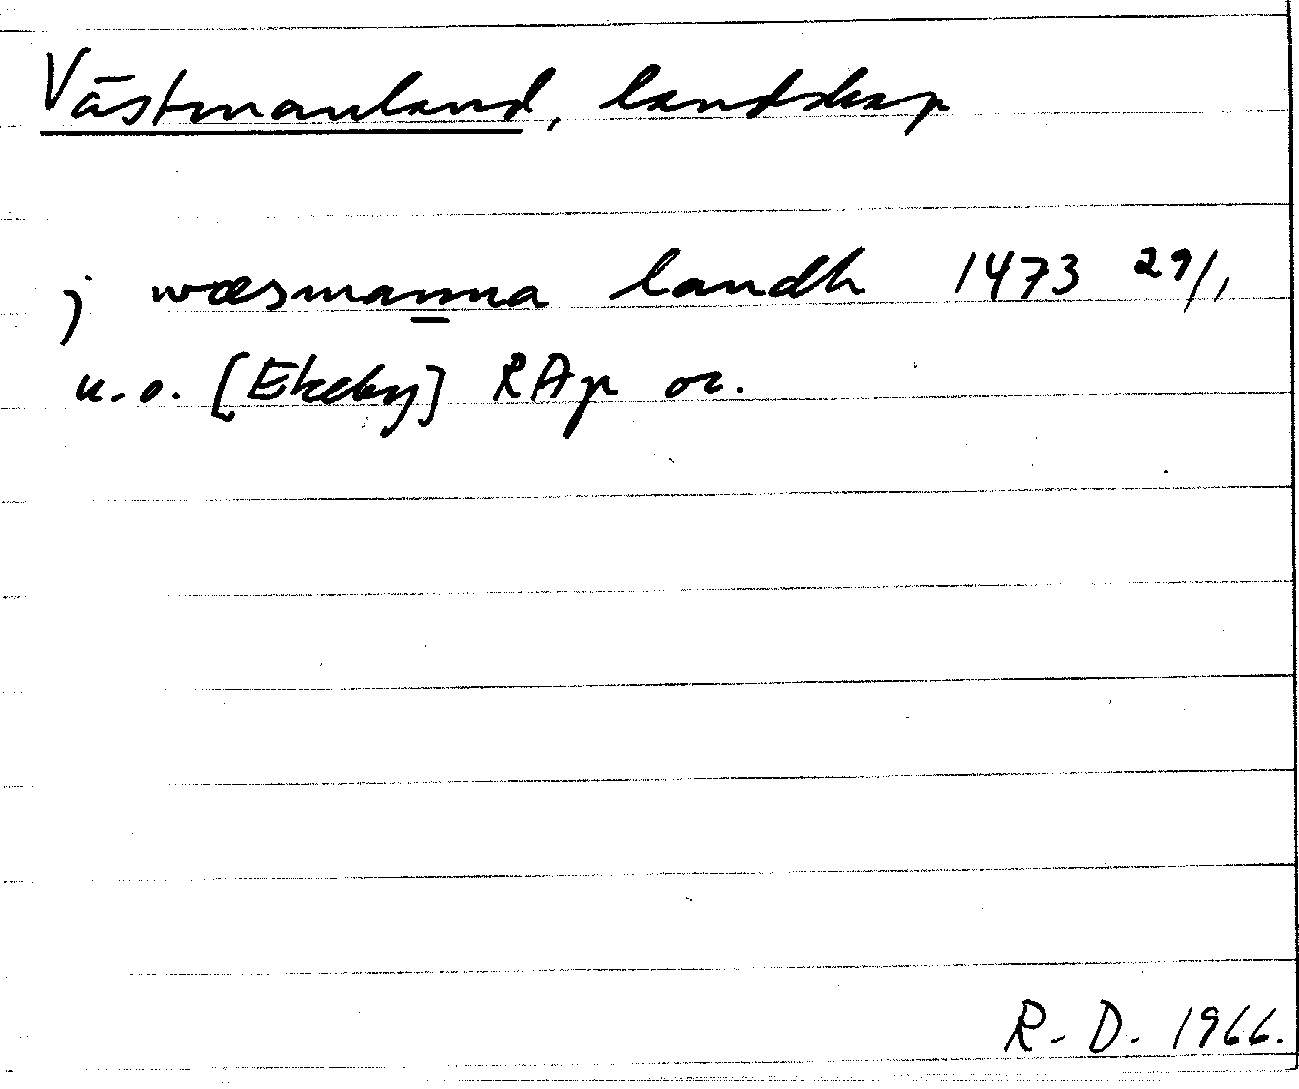 Västmanland, landskap
j wæsmanna landh 1473 29/1
u.o. [Ekeby] RAp or.
R. D. 1966.